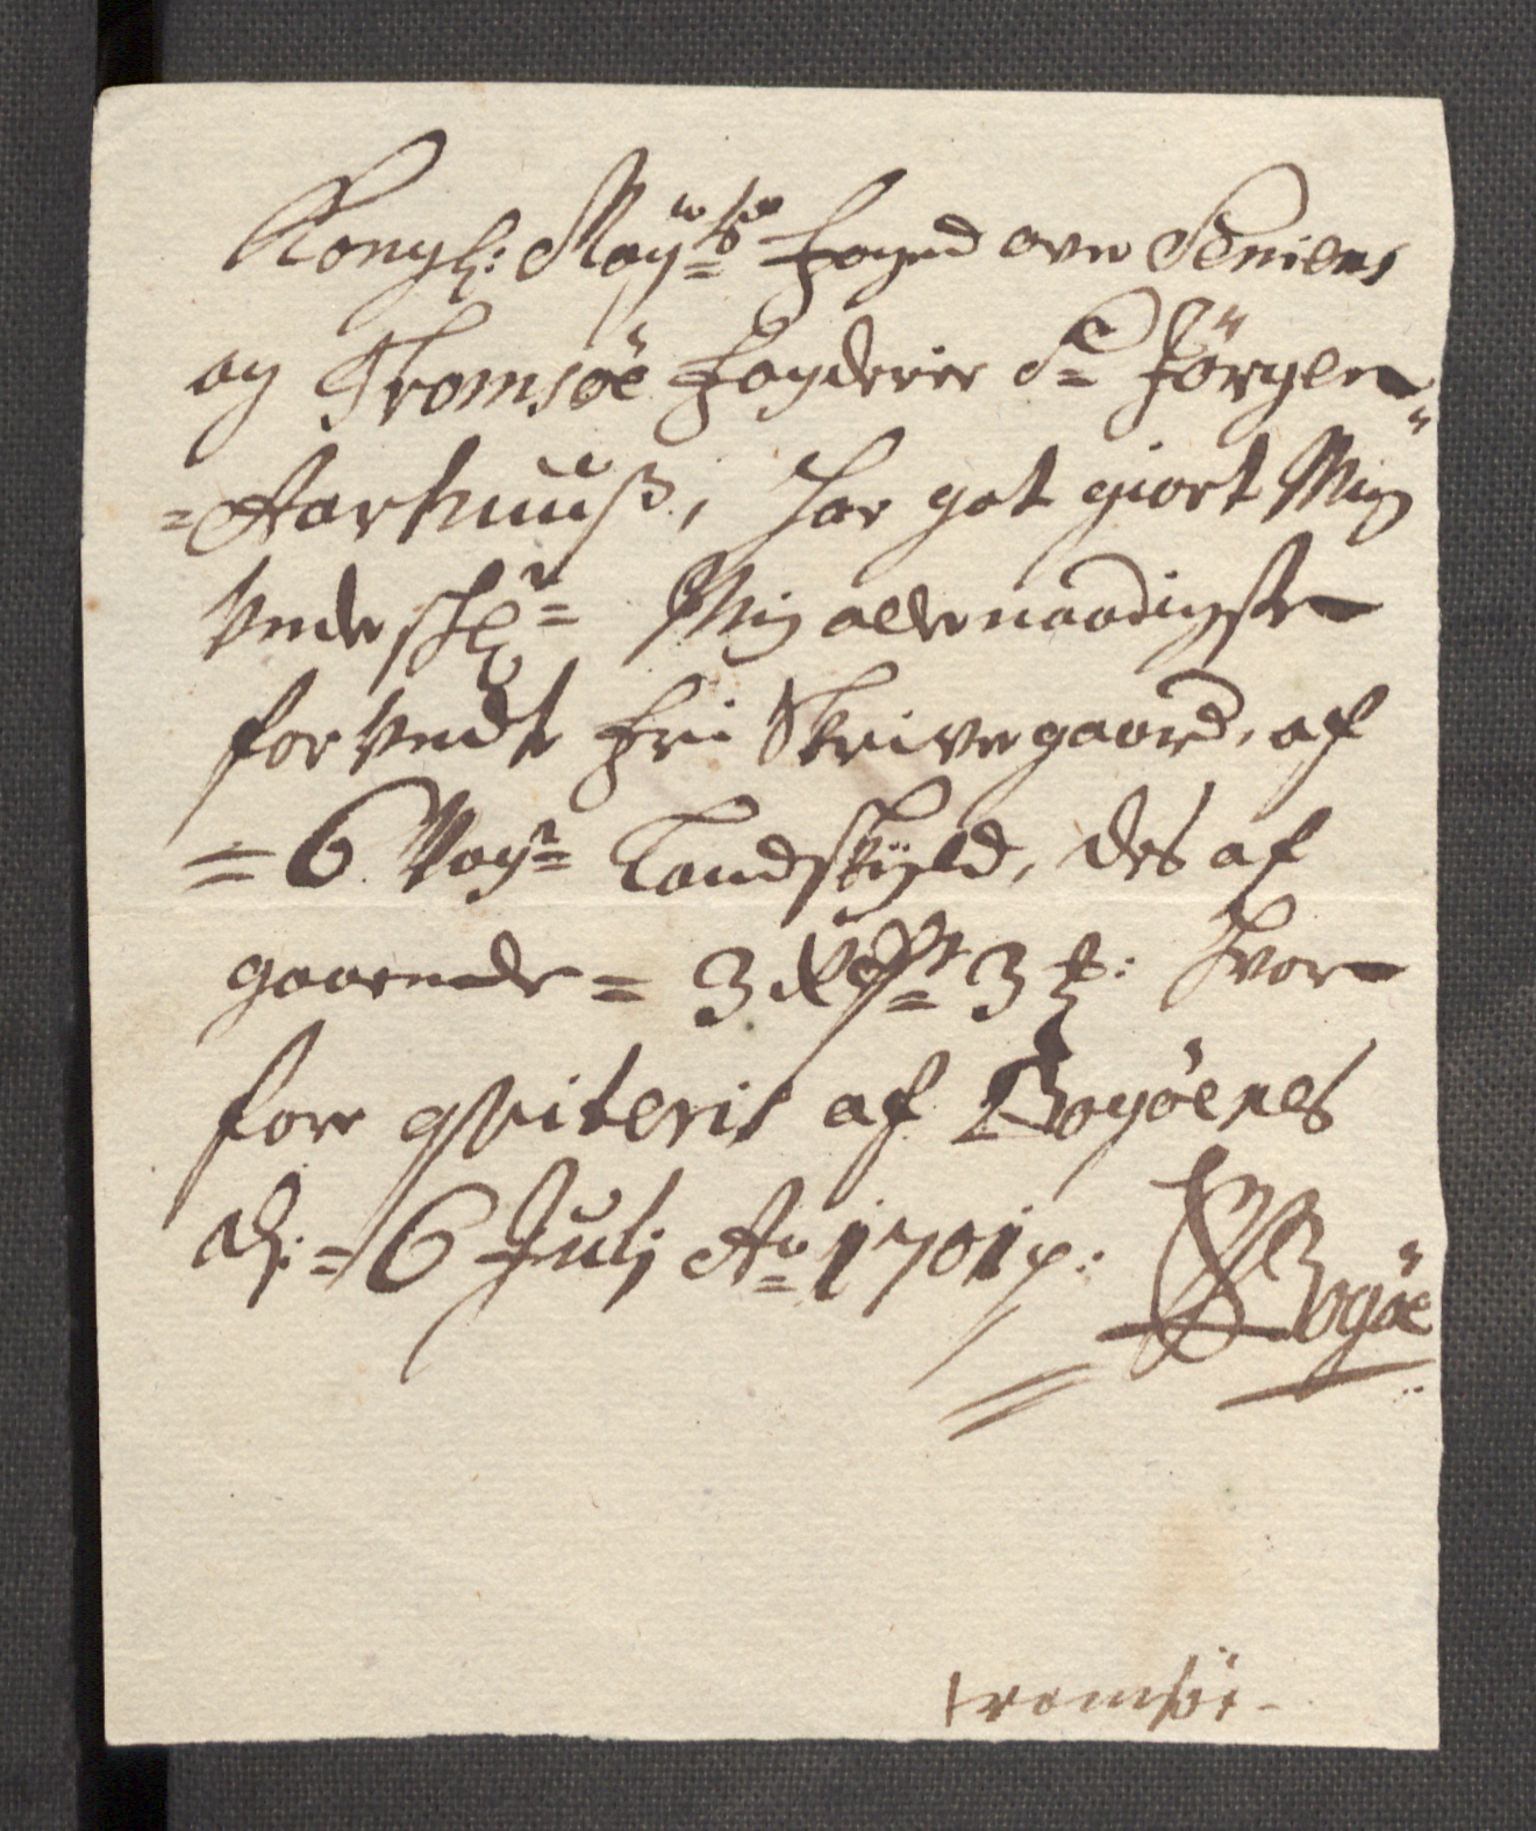 Kongl: May:ts Foged over Seniens
og Tromsöe Fogderier Sr Jörgen
=Aarhuuss, har got giort Mig
Under schr= Mig allernaadigste
forundte frii Skrivergaard, af
=6 Vogr= Landskyld, des af
gaaende = 3 Rdr= 3 ß: Hvor
fore qviteris af Bogöenes
d: =6 Julj Ao= 1701 p: Bogöe
tromsöe-